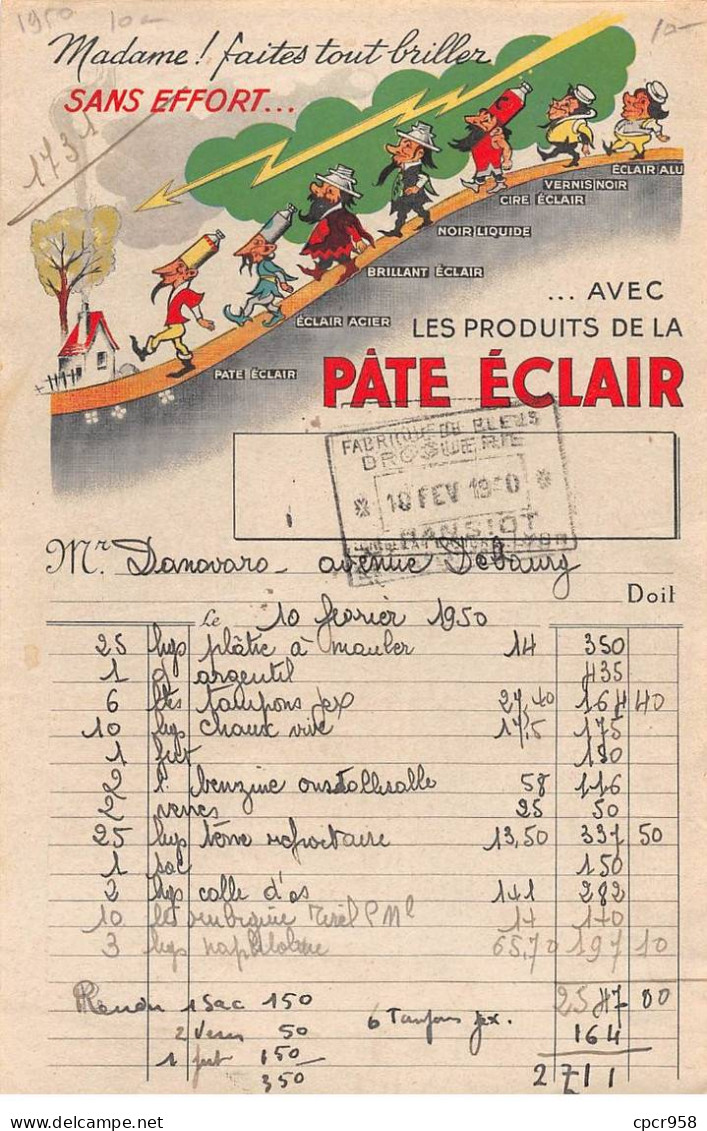 1950 10- 10-
Madame! faites tout briller
SANS EFFORT...
1731
ÉCLAIR ALU
VERNIS NOIR
CIRE ÉCLAIR
NOIR LIQUIDE
BRILLANT ÉCLAIR
ÉCLAIR ACIER
PATE ÉCLAIR
... AVEC
LES PRODUITS DE LA
PÂTE ÉCLAIR
FABRIQUE DE BLEUS
DROGUERIE
* 10 FEV 1950 *
DANSIOT
LYON
Mr. Danovaro - avenue Debourg
Doit
Le 10 février 1950
25 kgs plâtre à mouler 14 350
1 d argentil 435
6 btes tampons jex 27,40 164 40
10 kgs chaux vive 17,5 175
1 fut 150
2 l. benzine 58 116
2 verres 25 50
25 kgs terre refractaire 13,50 337 50
1 sac 150
2 kgs colle d'os 141 282
10 17 170
3 kgs 65,70 197 10
Rendu 1 Sac 150 2547 00
2 Verres 50 6 Tampons jex. 164
1 fut 150 2711
350
cpcr958